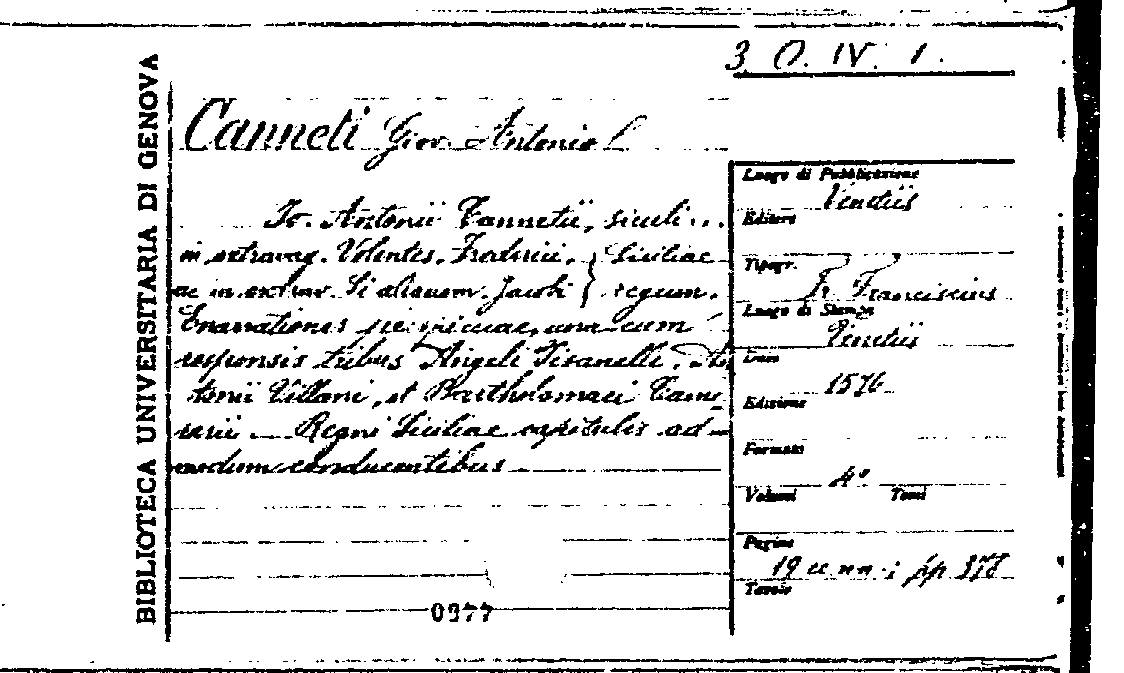 3. O. IV. 1.
BIBLIOTECA UNIVERSITARIA DI GENOVA
Canneti Giov. Antonio
Jo. Antonii Cannetii, siculi ..
in extravag. Volentes. Frederici. } Siciliae
ac in extrav. Si alienem. Jacobi } regum.
Enarrationes perspicuae, una cum
responsis tribus Angeli Pisanelli. An
tonii Villani, et Bartholomaei Came_
rarii _ Regni Siciliae capitulis ad_
modum conducentibus
0377
Luogo di Pubblicazione
Venetiis
Editore
Tipogr.
Fr. Franciscius
Luogo di Stampa
Venetiis
Data
1576
Edizione
Formato
4°
Volumi Tomi
Pagine
19 cc nn. ; pp 378
Tavole